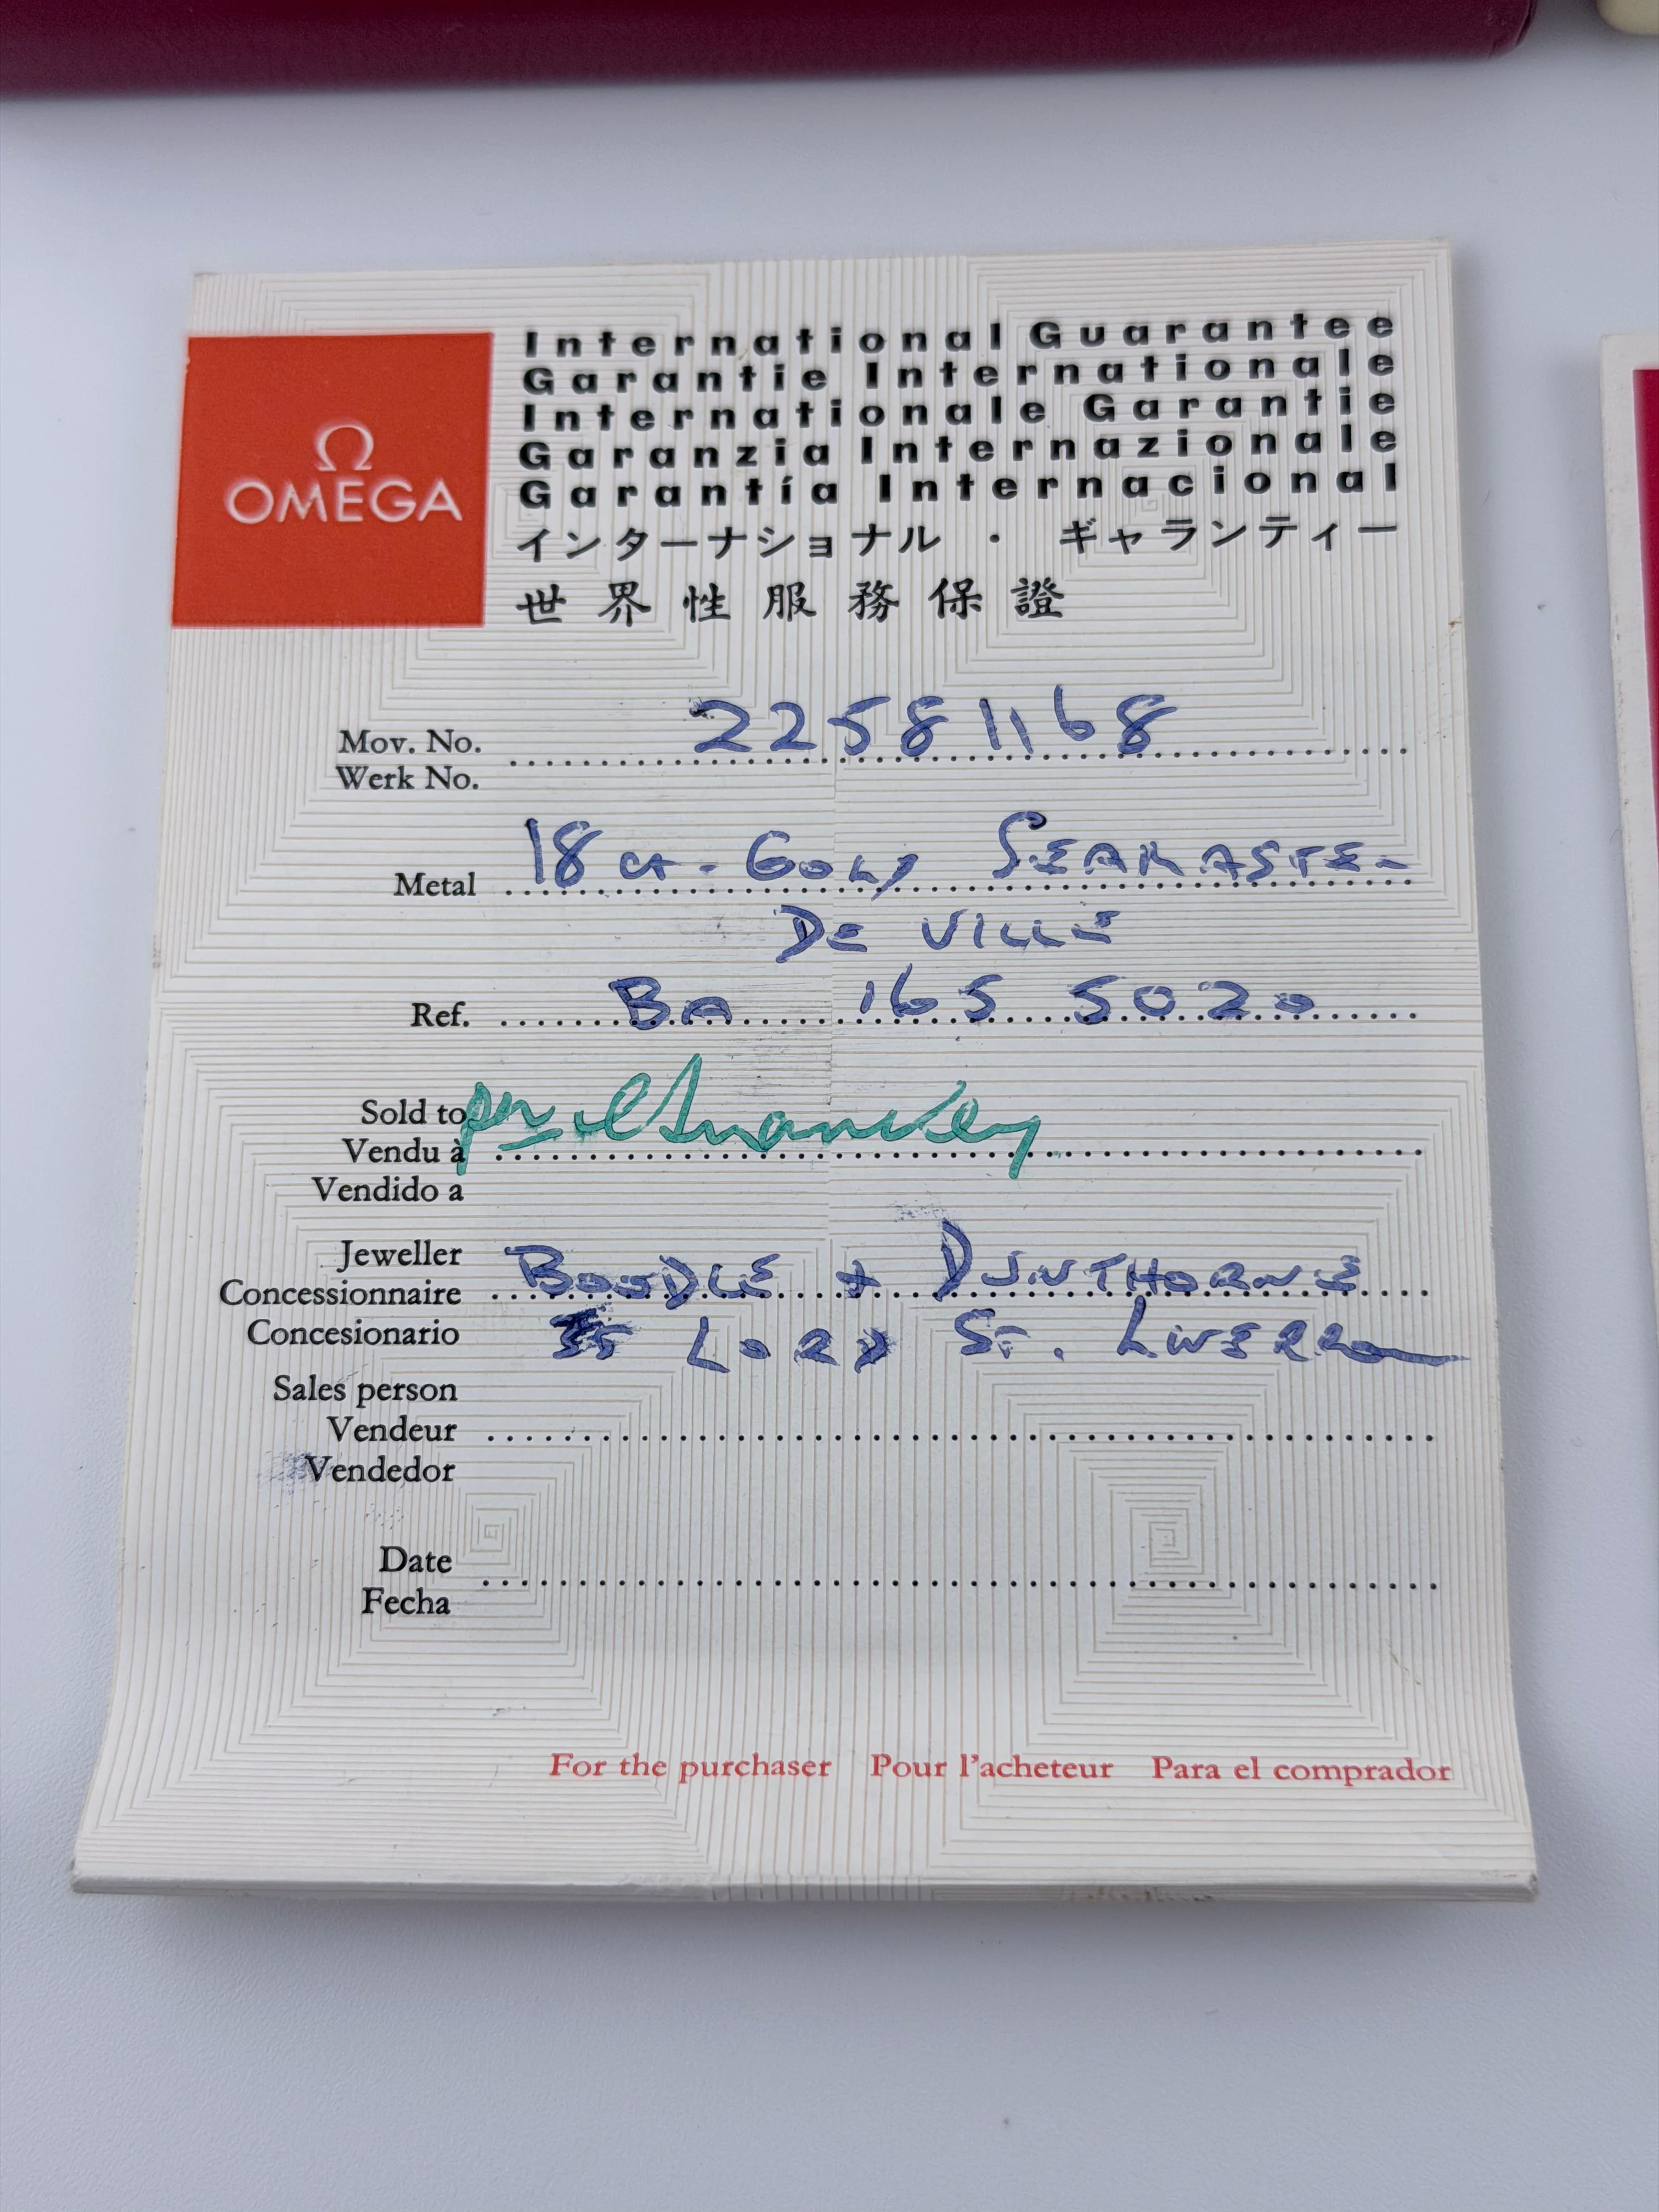 Ω
OMEGA
International Guarantee
Garantie Internationale
Internationale Garantie
Garanzia Internazionale
Garantía Internacional
インターナショナル ・ ギャランティー
世界性服務保證
Mov. No. 22581168
Werk No.
Metal 18 ct. GOLD SEAMASTER
DE VILLE
Ref. BA 165 5020
Sold to
Vendu à
Vendido a
Jeweller
Concessionnaire BOODLE + DUNTHORNE
Concesionario LORD ST. LIVERPOOL
Sales person
Vendeur
Vendedor
Date
Fecha
For the purchaser Pour l'acheteur Para el comprador